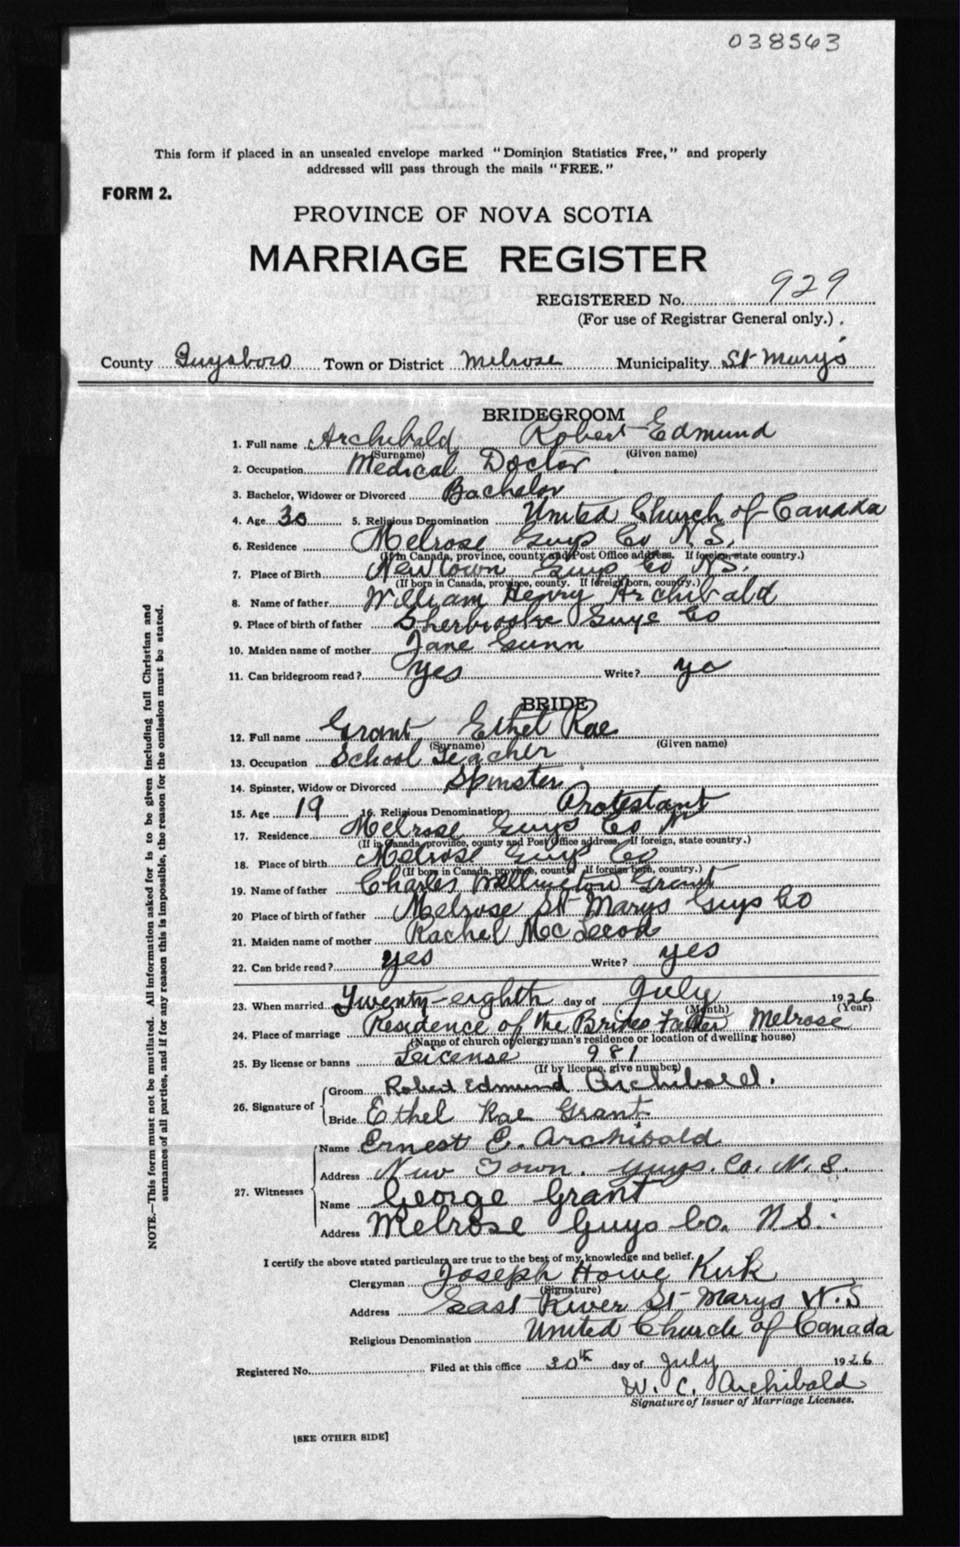 038563
This form if placed in an unsealed envelope marked "Dominion Statistics Free," and properly
addressed will pass through the mails "FREE."
FORM 2.
PROVINCE OF NOVA SCOTIA
MARRIAGE REGISTER
REGISTERED No. 929
(For use of Registrar General only.)
County Guysboro Town or District Melrose Municipality St Mary's
BRIDEGROOM
1. Full name Archibald Robert Edmund
(Surname) (Given name)
2. Occupation Medical Doctor
3. Bachelor, Widower or Divorced Bachelor
4. Age 30 5. Religious Denomination United Church of Canada
6. Residence Melrose Guys Co N.S.
(If in Canada, province, county and Post Office address. If foreign, state country.)
7. Place of Birth Newtown Guys Co NS.
(If born in Canada, province, county. If foreign born, country.)
8. Name of father William Henry Archibald
9. Place of birth of father Sherbrooke Guys Co
10. Maiden name of mother Jane Gunn
11. Can bridegroom read? yes Write? ye
BRIDE
12. Full name Grant Ethel Rae
(Surname) (Given name)
13. Occupation School Teacher
14. Spinster, Widow or Divorced Spinster
15. Age 19 16. Religious Denomination Protestant
17. Residence Melrose Guys Co N
(If in Canada, province, county and Post Office address. If foreign, state country.)
18. Place of birth Melrose Guys Co
(If born in Canada, province, county. If foreign born, country.)
19. Name of father Charles Wellington Grant
20 Place of birth of father Melrose St Marys Guys Co
21. Maiden name of mother Rachel McLeod
22. Can bride read? yes Write? yes
23. When married Twenty-eighth day of July 1926
(Month) (Year)
24. Place of marriage Residence of the Brides Father Melrose
(Name of church or clergyman's residence or location of dwelling house)
25. By license or banns License 981
(If by license, give number)
26. Signature of
Groom Robert Edmund Archibald.
Bride Ethel Rae Grant
27. Witnesses
Name Ernest E. Archibald
Address New Town. Guys. Co. N. S.
Name George Grant
Address Melrose Guys Co. N.S.
I certify the above stated particulars are true to the best of my knowledge and belief.
Clergyman Joseph Howe Kirk
(Signature)
Address East River St Marys N.S
Religious Denomination United Church of Canada
Registered No. Filed at this office 30th day of July 1926
W. C. Archibald
Signature of Issuer of Marriage Licenses.
[SEE OTHER SIDE]
NOTE.—This form must not be mutilated. All information asked for is to be given including full Christian and
surnames of all parties, and if for any reason this is impossible, the reason for the omission must be stated.